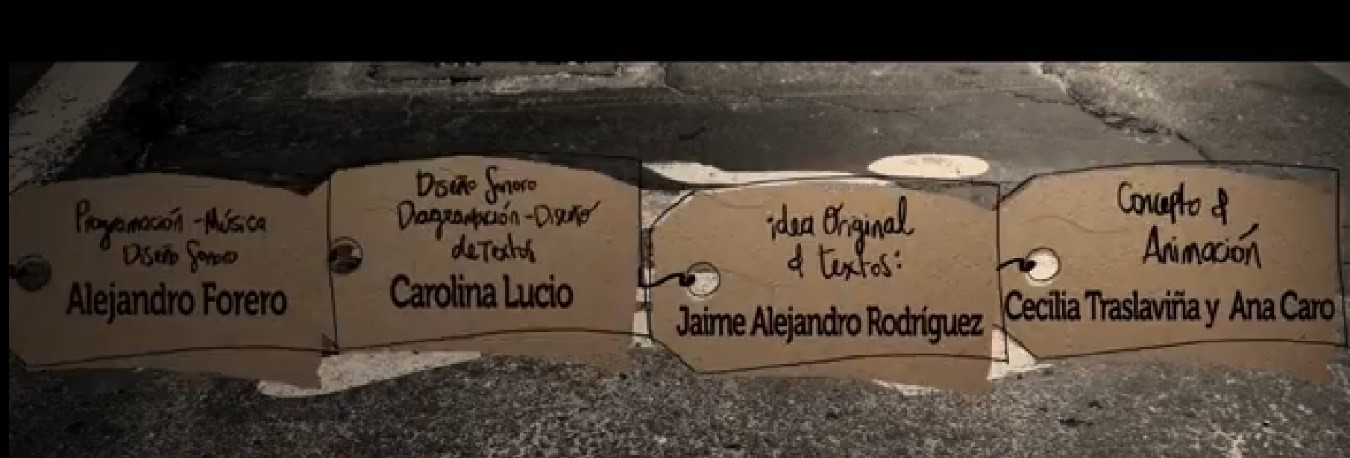 Programación - Música
Diseño Sonoro
Alejandro Forero
Diseño Sonoro
Diagramación - Diseño
de Textos
Carolina Lucio
idea Original
& textos:
Jaime Alejandro Rodríguez
Concepto &
Animación
Cecilia Traslaviña y Ana Caro